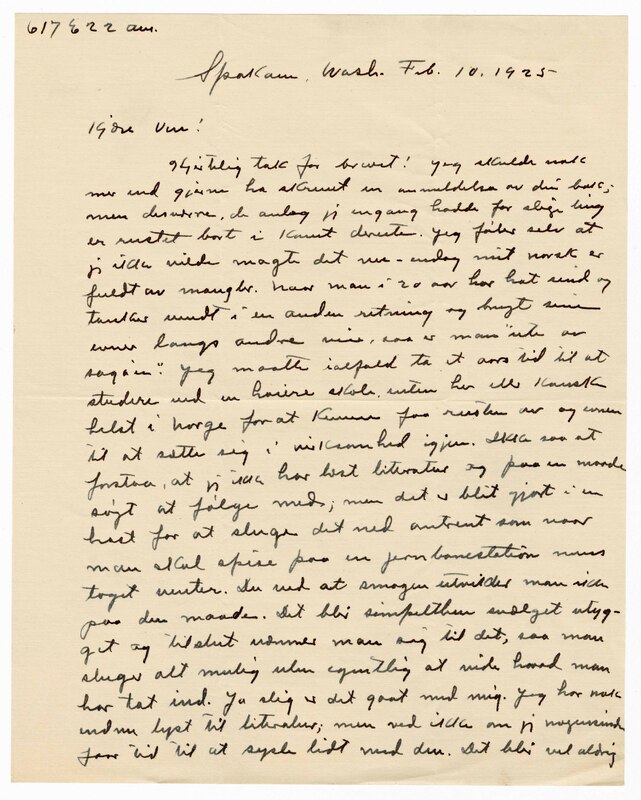 617 E 22 ave.
Spokane, Wash. Feb. 10. 1925
Kjære Ven!
Hjertelig tak for brevet! Jeg skulde nok
mer end gjerne ha skrevet en anmeldelse av din bok;
men desværre, de anlæg jeg engang hadde for slige ting
er rustet bort i Kunst dereste. Jeg føler selv at
jeg ikke vilde magte det nu – endog mit norsk er
fuldt av mangler. Naar man i 20 aar har hat sind og
tanker vendt i en anden retning og brugt sine
evner langs andre veie, saa er man "ute av
sagaen". Jeg maatte ialfald ta et aars tid til at
studere ved en høiere skole, enten her eller kanske
helst i Norge for at kunne faa rusten av og evnen
til at sætte sig i virksomhed igjen. Ikke saa at
forstaa, at jeg ikke har læst literatur og paa en maade
søgt at følge med; men det er blit gjort i en
hast for at sluge det ned omtrent som naar
man skal spise paa en jernbanestation mens
toget venter. Du ved at smagen utvikler man ikke
paa den maade. Det blir simpelthen svælget utyg-
get og tilslut vænner man sig til det, saa man
sluger alt mulig uten egentlig at vide hvad man
har tat ind. Ja slig er det gaat med mig. Jeg har nok
endnu lyst til literatur; men ved ikke om jeg nogensinde
faar tid til at sysle lidt med den. Det blir vel aldrig